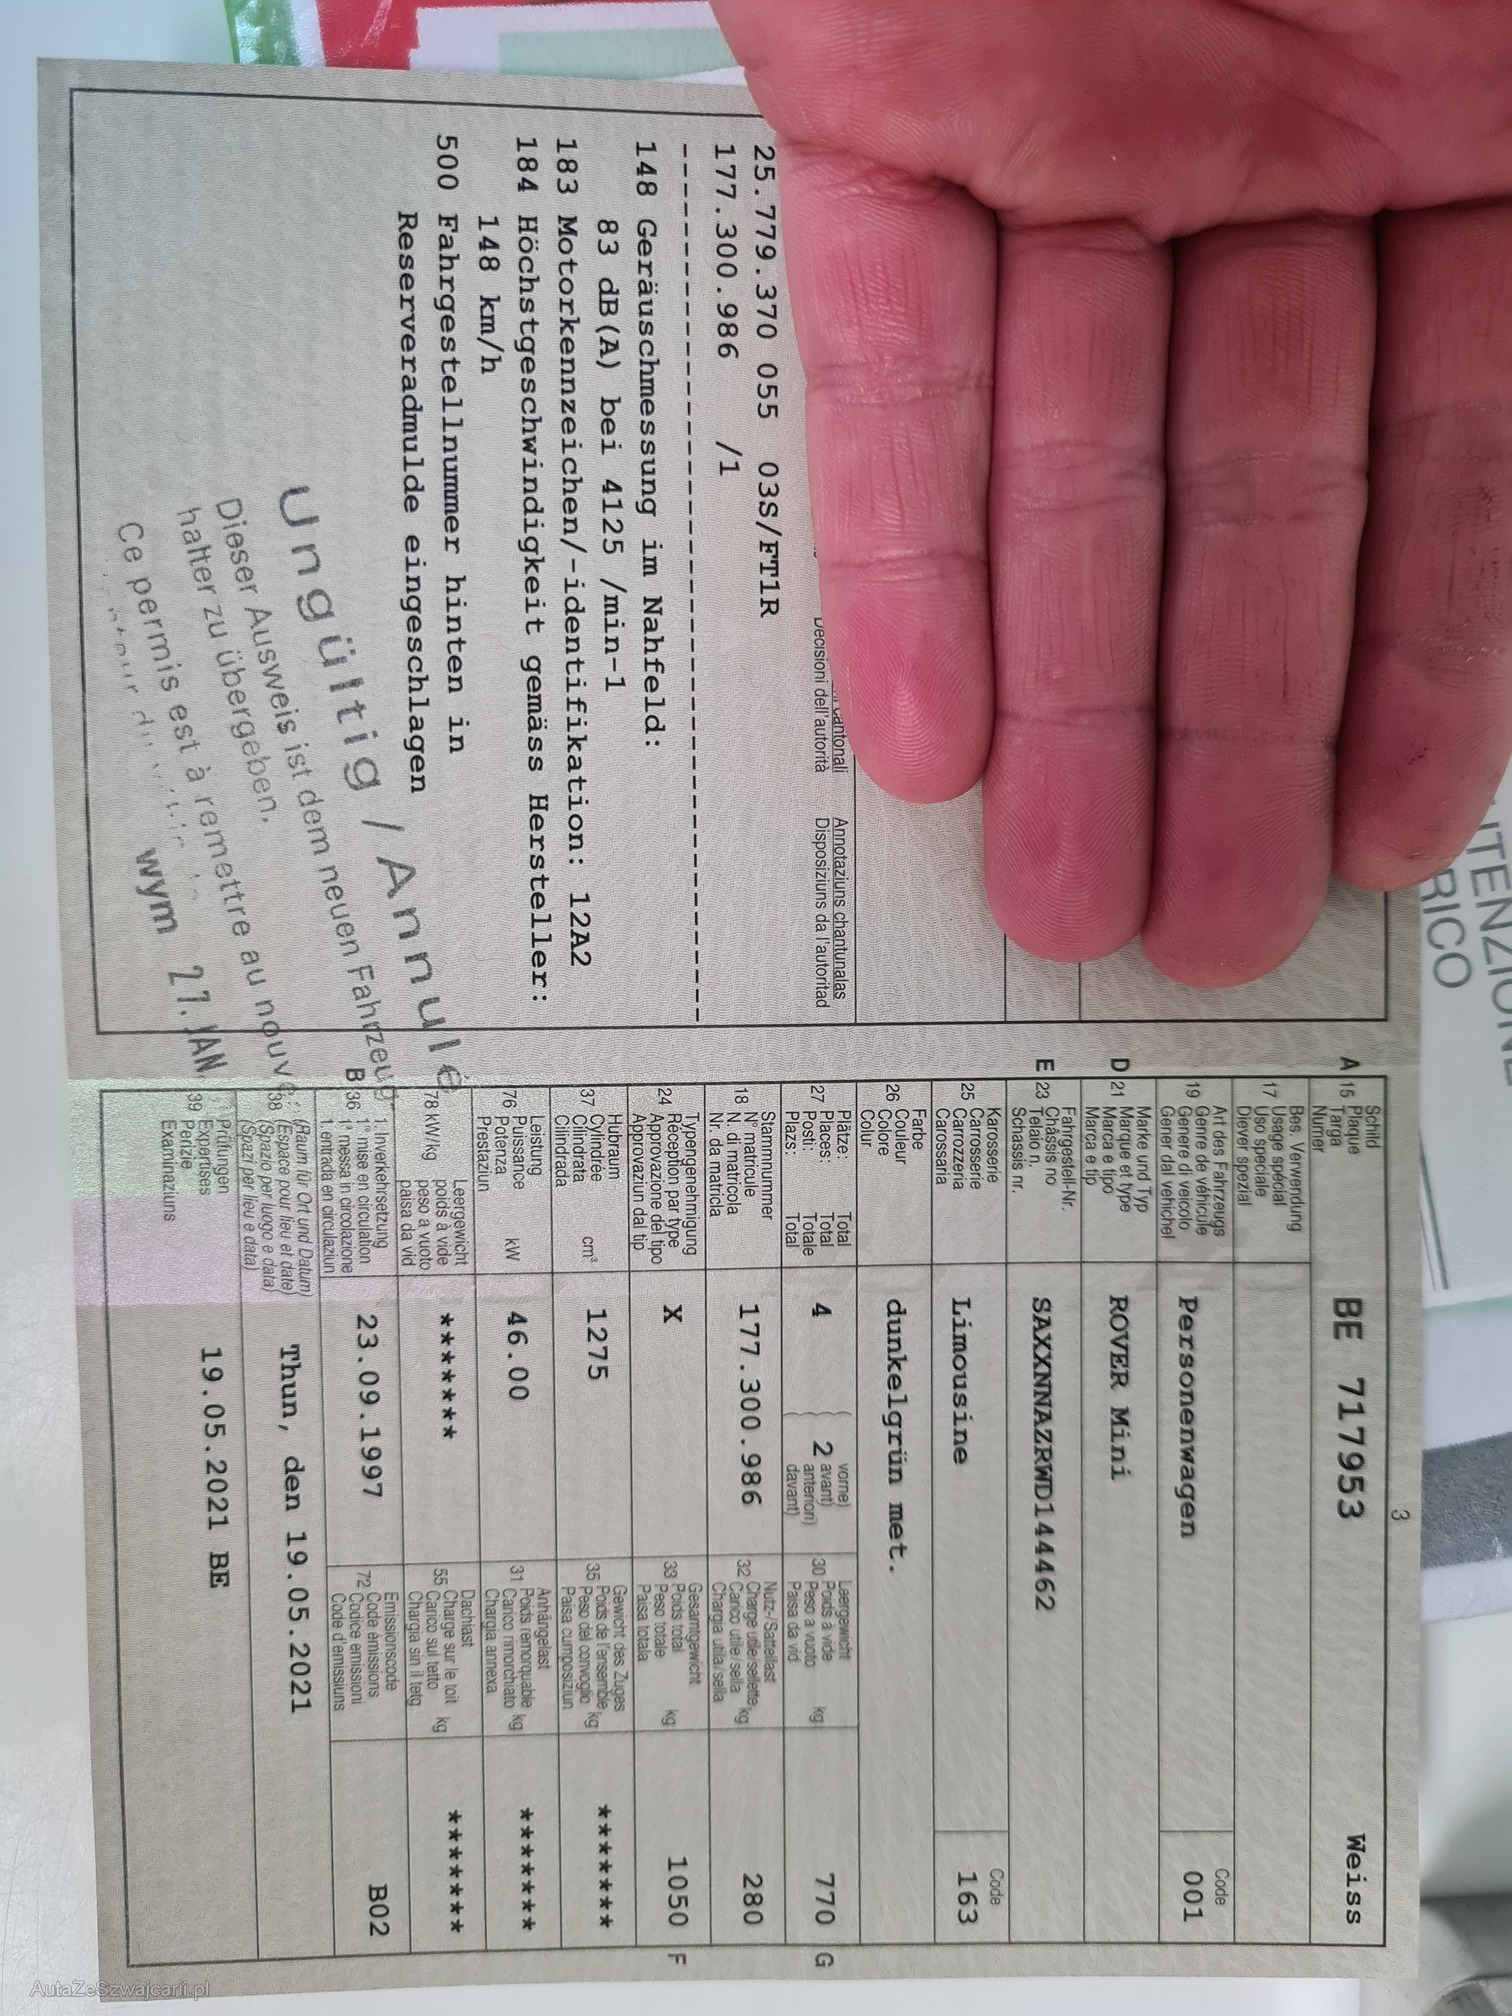 3
A 15 Schild
Plaque
Targa
Numer
BE 717953 Weiss
17 Bes. Verwendung
Usage spécial
Uso speciale
Diever spezial
19 Art des Fahrzeugs
Genre de véhicule
Genere di veicolo
Gener dal vehichel
Personenwagen
Code
001
D 21 Marke und Typ
Marque et type
Marca e tipo
Marca e tip
ROVER Mini
E 23 Fahrgestell-Nr.
Châssis no
Telaio n.
Schassis nr.
SAXXNNAZRWD144462
25 Karosserie
Carrosserie
Carrozzeria
Carossaria
Limousine
Code
163
26 Farbe
Couleur
Colore
Colur
dunkelgrün met.
27 Plätze: Total
Places: Total
Posti: Totale
Plazs: Total
4
vorne)
2 avant)
anteriori)
davant)
30 Leergewicht
Poids à vide
Peso a vuoto
Paisa da vid
kg
770 G
18 Stammnummer
N° matricule
N. di matricola
Nr. da matricla
177.300.986
32 Nutz-/Sattellast
Charge utile/sellette
Carico utile/sella
Chargia utila/sella
kg
280
24 Typengenehmigung
Réception par type
Approvazione del tipo
Approvaziun dal tip
X
33 Gesamtgewicht
Poids total
Peso totale
Paisa totala
kg
1050 F
37 Hubraum
Cylindrée
Cilindrata
Cilindrada
cm³
1275
35 Gewicht des Zuges
Poids de l'ensemble
Peso del convoglio
Paisa cumposiziun
kg
*******
76 Leistung
Puissance
Potenza
Prestaziun
kW
46.00
31 Anhängelast
Poids remorquable
Carico rimorchiato
Chargia annexa
kg
*******
78 kW/kg
Leergewicht
poids à vide
peso a vuoto
paisa da vid
*******
55 Dachlast
Charge sur le toit
Carico sul tetto
Chargia sin il tetg
kg
*******
B 36 1. Inverkehrsetzung
1re mise en circulation
1a messa in circolazione
1. entrada en circulaziun
23.09.1997
72 Emissionscode
Code émissions
Codice emissioni
Code d'emissiuns
B02
38 (Raum für Ort und Datum)
(Espace pour lieu et date)
(Spazio per luogo e data)
(Spazi per lieu e data)
Thun, den 19.05.2021
39 Prüfungen
Expertises
Perizie
Examinaziuns
19.05.2021 BE
cantonali Annotaziuns chantunalas
Decisioni dell'autorità Disposiziuns da l'autoritad
25.779.370 055 03S/FT1R
177.300.986 /1
148 Geräuschmessung im Nahfeld:
83 dB(A) bei 4125 /min-1
183 Motorkennzeichen/-identifikation: 12A2
184 Höchstgeschwindigkeit gemäss Hersteller:
148 km/h
500 Fahrgestellnummer hinten in
Reserveradmulde eingeschlagen
Ungültig / Annulé
Dieser Ausweis ist dem neuen Fahrzeug
halter zu übergeben.
Ce permis est à remettre au nouv
wym 27. JAN.
RICO
AutaZeSzwajcarii.pl